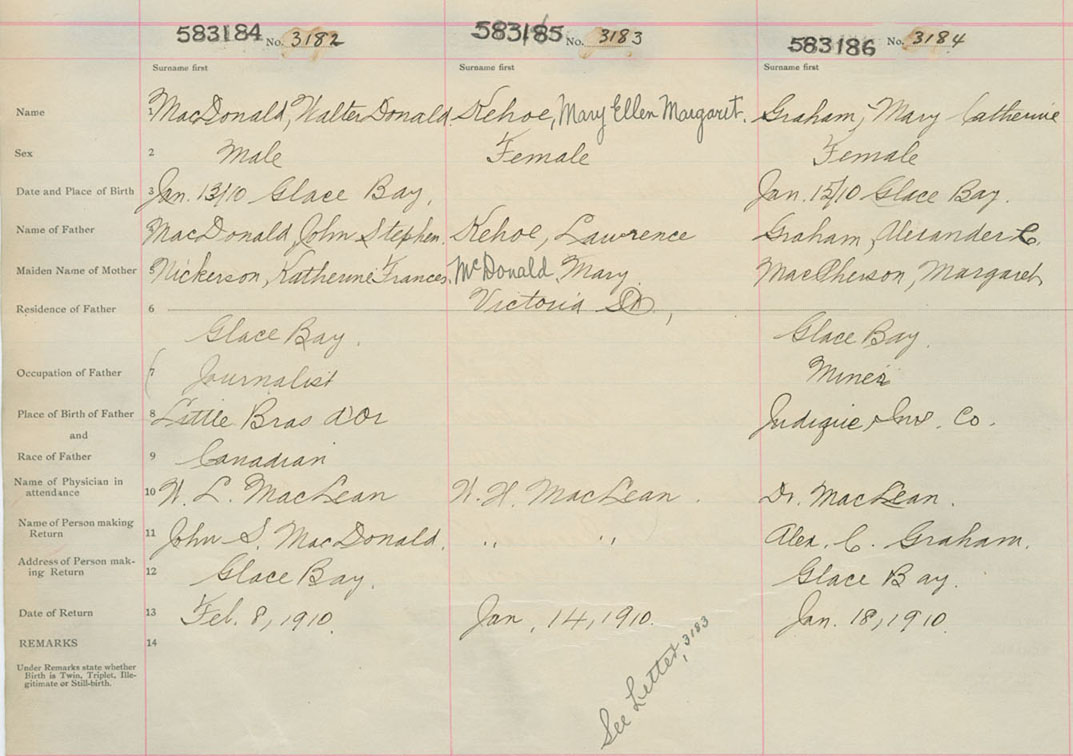 583184 No. 3182 583185 No. 3183 583186 No. 3184
Surname first Surname first Surname first
Name 1 MacDonald, Walter Donald Kehoe, Mary Ellen Margaret. Graham, Mary Catherine
Sex 2 Male Female Female
Date and Place of Birth 3 Jan. 13/10 Glace Bay. Jan. 15/10 Glace Bay.
Name of Father MacDonald, John Stephen. Kehoe, Lawrence Graham, Alexander C.
Maiden Name of Mother 5 Nickerson, Katherine Frances. McDonald, Mary MacPherson, Margaret
Residence of Father 6 Victoria St,
Glace Bay. Glace Bay.
Occupation of Father 7 Journalist Miner
Place of Birth of Father 8 Little Bras d'Or Judique Inv. Co.
and
Race of Father 9 Canadian
Name of Physician in
attendance 10 W. L. MacLean W. H. MacLean. Dr. MacLean.
Name of Person making
Return 11 John S. MacDonald. " " Alex. C. Graham.
Address of Person mak-
ing Return 12 Glace Bay. Glace Bay.
Date of Return 13 Feb. 8, 1910. Jan. 14, 1910. Jan. 18, 1910.
REMARKS 14
Under Remarks state whether
Birth is Twin, Triplet, Ille-
gitimate or Still-birth.
See Letter, 3183